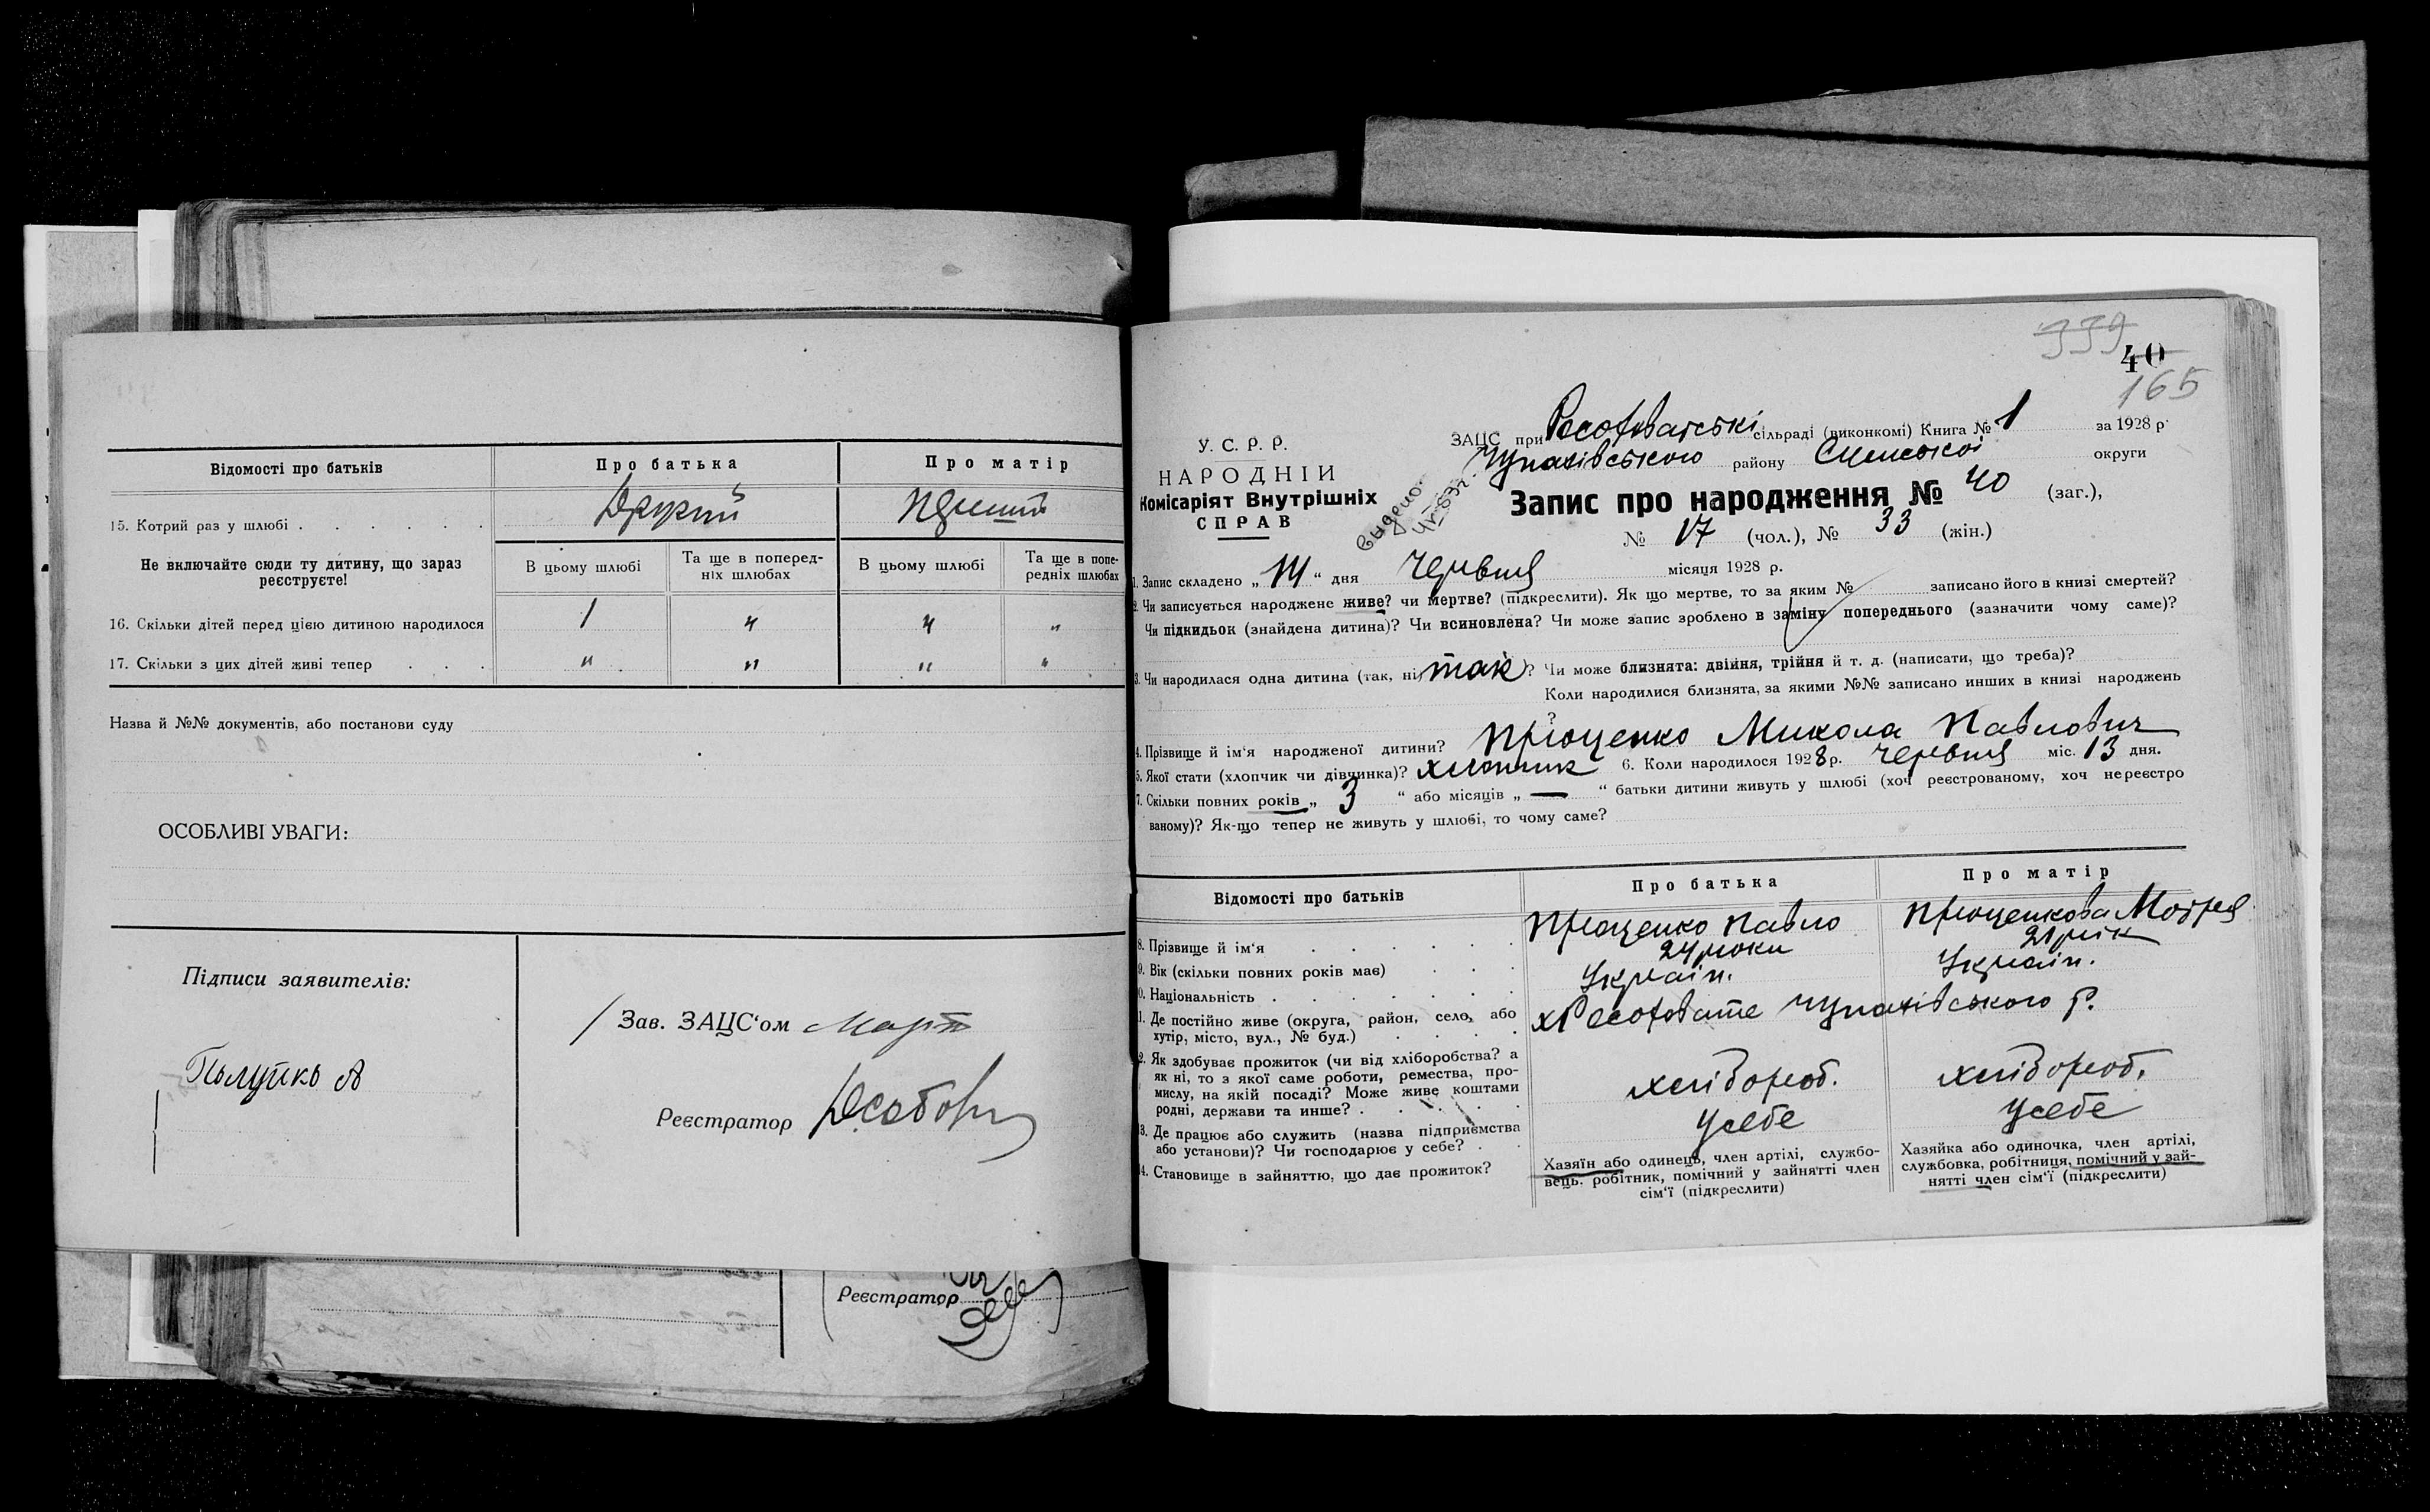 Відомості про батьків
Про батька
Про матір
15. Котрий раз у шлюбі . . . . . .
Другий
Перший
Не включайте сюди ту дитину, що зараз реєструєте!
В цьому шлюбі
Та ще в поперед-
ніх шлюбах
В цьому шлюбі
Та ще в попе-
редніх шлюбах
16. Скільки дітей перед цією дитиною народилося
1 " " "
17. Скільки з цих дітей живі тепер . . .
" " " "
Назва й №№ документів, або постанови суду
ОСОБЛИВІ УВАГИ:
Підписи заявителів:
Зав. ЗАЦС'ом
Реєстратор
Реєстратор
339
40
165
У. С. Р. Р.
НАРОДНІЙ
Комісаріят Внутрішніх
СПРАВ
ЗАЦС при сільраді (виконкомі) Книга № 1 за 1928 р.
Чупахівського району Сумської округи
Запис про народження № 40 (заг.),
№ 17 (чол.), № 33 (жін.)
1. Запис складено „ 14 “ дня Червня місяця 1928 р.
2. Чи записується народжене живе? чи мертве? (підкреслити). Як що мертве, то за яким № записано його в книзі смертей?
Чи підкидьок (знайдена дитина)? Чи всиновлена? Чи може запис зроблено в заміну попереднього (зазначити чому саме)?
3. Чи народилася одна дитина (так, ні) так ? Чи може близнята: двійня, трійня й т. д. (написати, що треба)?
Коли народилися близнята, за якими №№ записано инших в книзі народжень
?
4. Прізвище й ім'я народженої дитини? Проценко Микола Павлович
5. Якої стати (хлопчик чи дівчинка)? хлопчик 6. Коли народилося 1928 р. червня міс. 13 дня.
7. Скільки повних років „ 3 “ або місяців „ — “ батьки дитини живуть у шлюбі (хоч реєстрованому, хоч нереєстро
ваному)? Як-що тепер не живуть у шлюбі, то чому саме?
Відомості про батьків
Про батька
Про матір
8. Прізвище й ім'я . . . . . .
Проценко Павло
Проценкова Мотря
9. Вік (скільки повних років має) . . .
24 роки
21 рік
10. Національність . . . . . . .
Україн.
Україн.
11. Де постійно живе (округа, район, село, або
хутір, місто, вул., № буд.) . . . .
Чупахівського р.
12. Як здобуває прожиток (чи від хліборобства? а
як ні, то з якої саме роботи, ремества, про-
мислу, на якій посаді? Може живе коштами
родні, держави та инше? . . . . .
хлібороб.
хлібороб.
13. Де працює або служить (назва підприємства
або установи)? Чи господарює у себе? . .
У себе
У себе
14. Становище в зайняттю, що дає прожиток?
Хазяїн або одинець, член артілі, службо-
вець, робітник, помічний у зайнятті член
сім'ї (підкреслити)
Хазяйка або одиночка, член артілі,
службовка, робітниця, помічний у зай-
нятті член сім'ї (підкреслити)